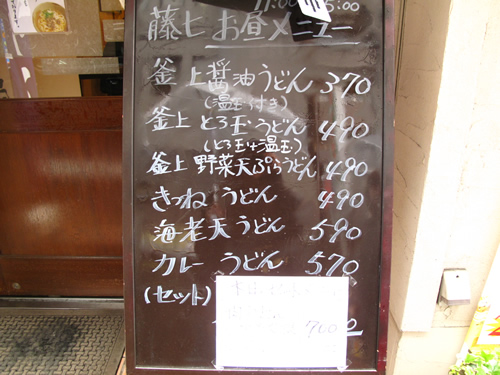 11:00 5:00
藤七 お昼メニュー
釜上醤油うどん 370
(温玉付き)
釜上とろ玉うどん 490
(とろ玉+温玉)
釜上野菜天ぷらうどん 490
きつねうどん 490
海老天うどん 590
カレーうどん 570
(セット)
700